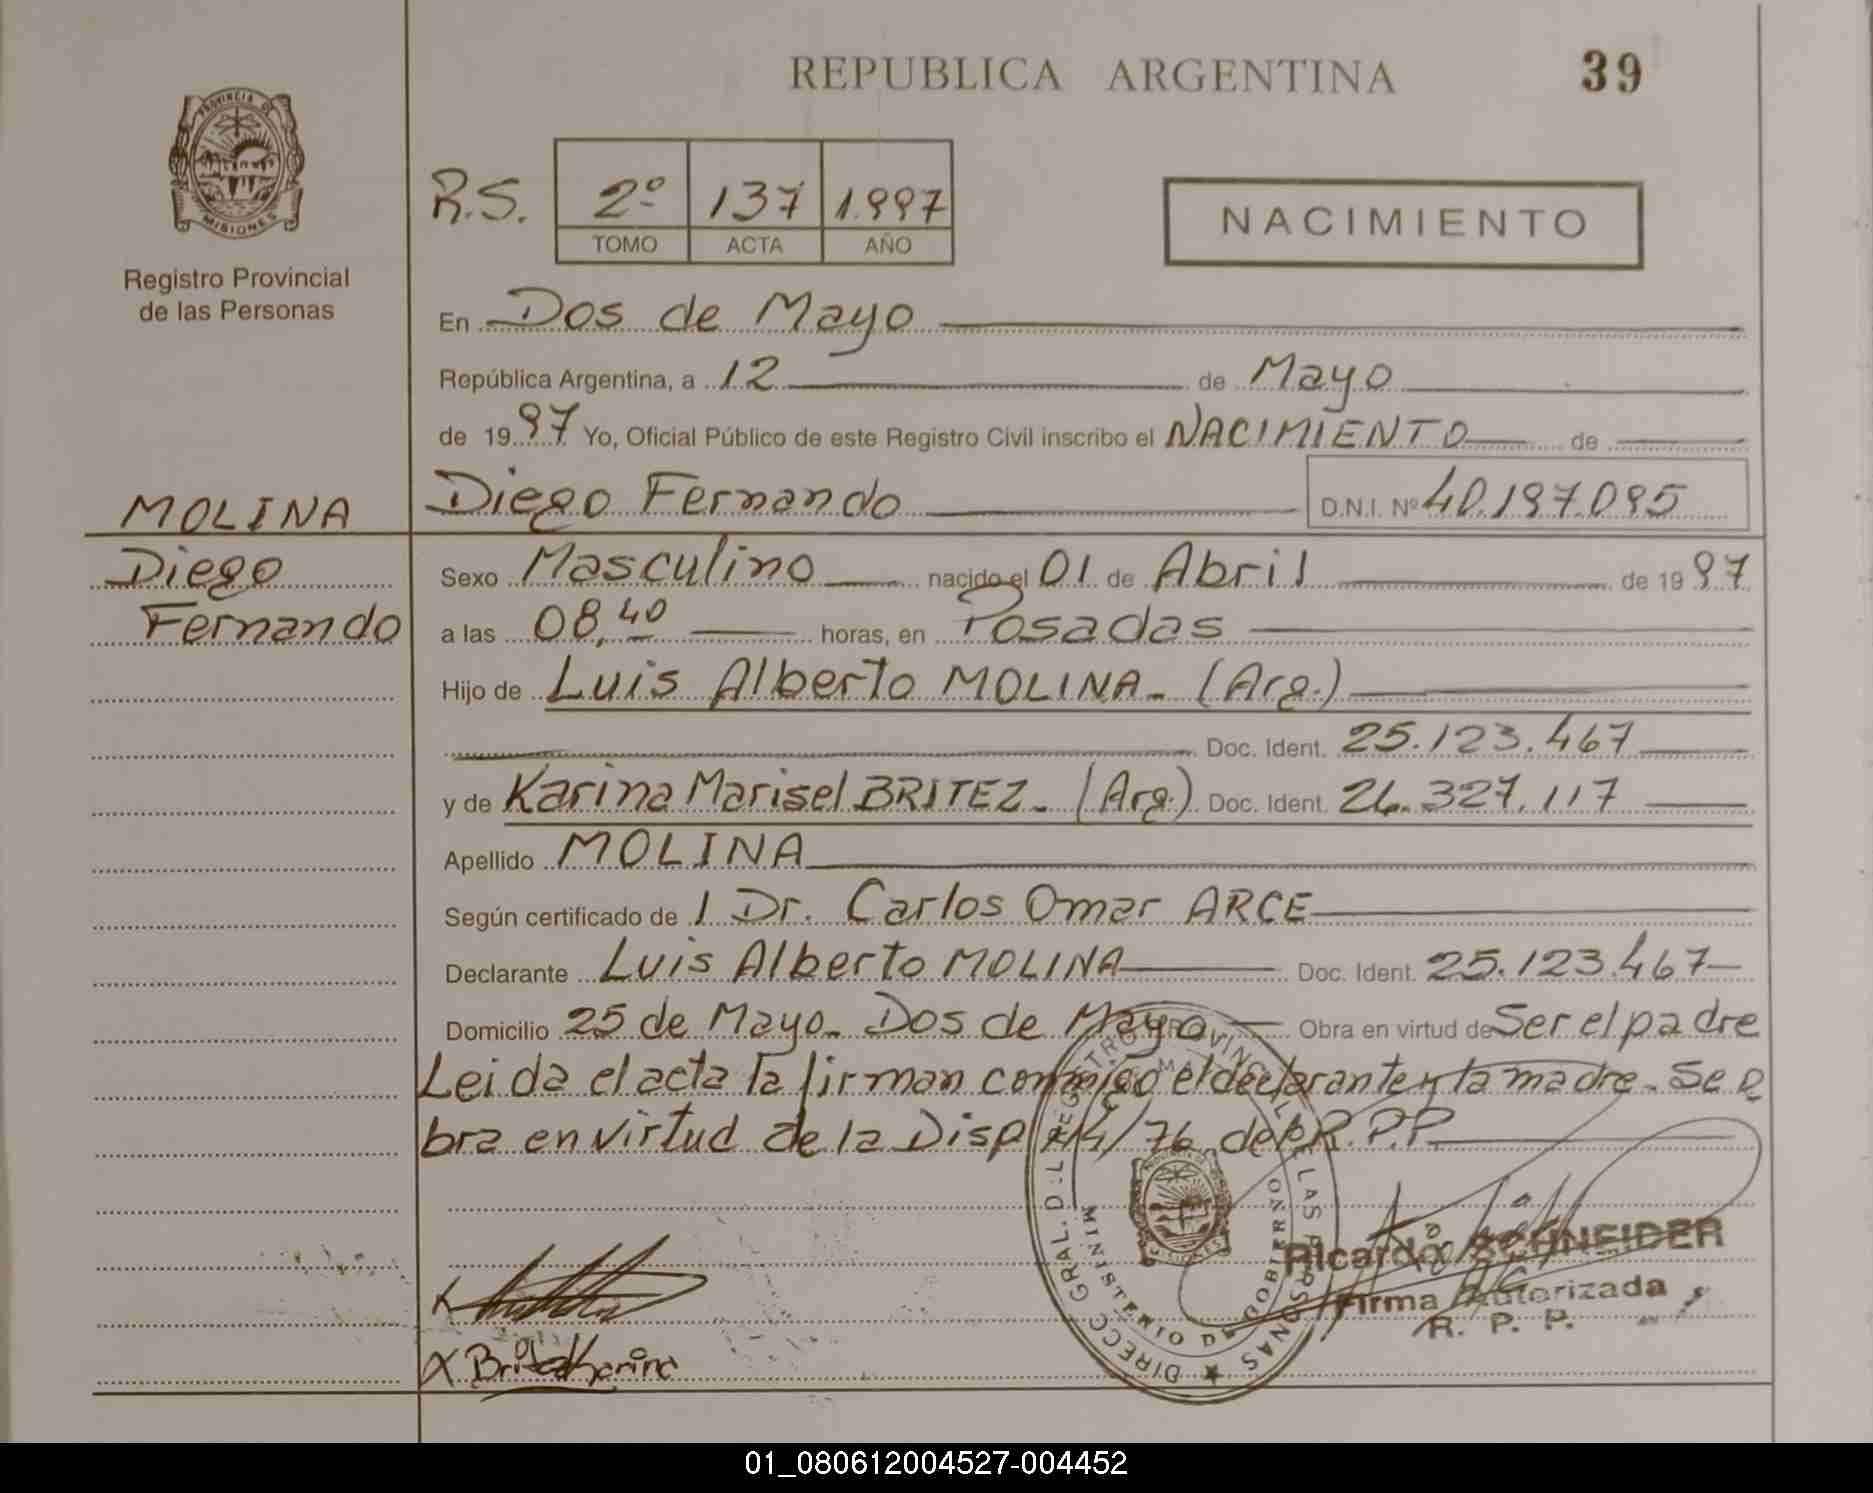 REPUBLICA ARGENTINA
39
PROVINCIA DE
MISIONES
Registro Provincial
de las Personas
R.S.
2º 137 1.997
TOMO ACTA AÑO
NACIMIENTO
En Dos de Mayo
República Argentina, a 12 de Mayo
de 1997 Yo, Oficial Público de este Registro Civil inscribo el NACIMIENTO de
Diego Fernando D.N.I. Nº 40.197.095
MOLINA
Diego
Fernando
Sexo Masculino nacido el 01 de Abril de 1997
a las 08,40 horas, en Posadas
Hijo de Luis Alberto MOLINA - (Arg.)
Doc. Ident. 25.123.467
y de Karina Marisel BRITEZ - (Arg.) Doc. Ident. 26.327.117
Apellido MOLINA
Según certificado de 1 Dr. Carlos Omar ARCE
Declarante Luis Alberto MOLINA Doc. Ident. 25.123.467
Domicilio 25 de Mayo - Dos de Mayo Obra en virtud de Ser el padre
Leida el acta la firman conmigo el declarante y la madre - Se o
bra en virtud de la Disp. 14/76 del R.P.P.
DIRECC GRAL. D'L REGISTRO PROVINCIAL DE LAS PERSONAS
MINISTERIO DE GOBIERNO
Ricardo SCHNEIDER
Firma Autorizada
R. P. P.
X
X Britez Karina
01_080612004527-004452